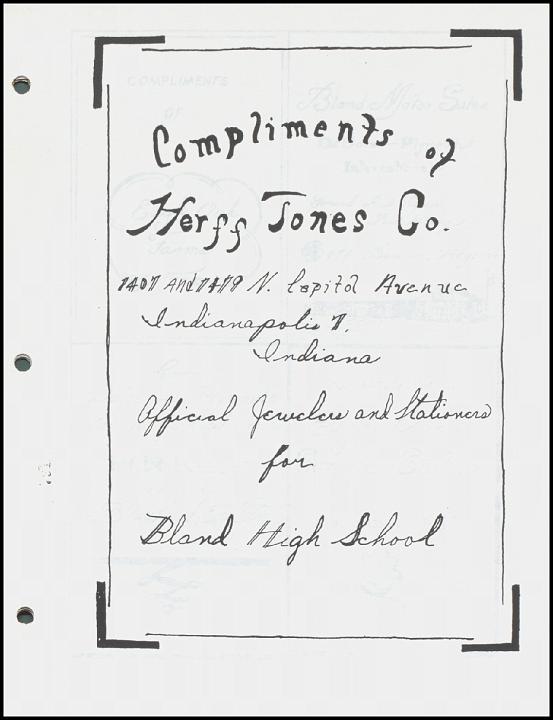 Compliments of
Herff Jones Co.
1407 and 1419 N. Capitol Avenue
Indianapolis 7,
Indiana
Official Jewelers and Stationers
for
Bland High School
COMPLIMENTS
OF
Bland Motor Sales